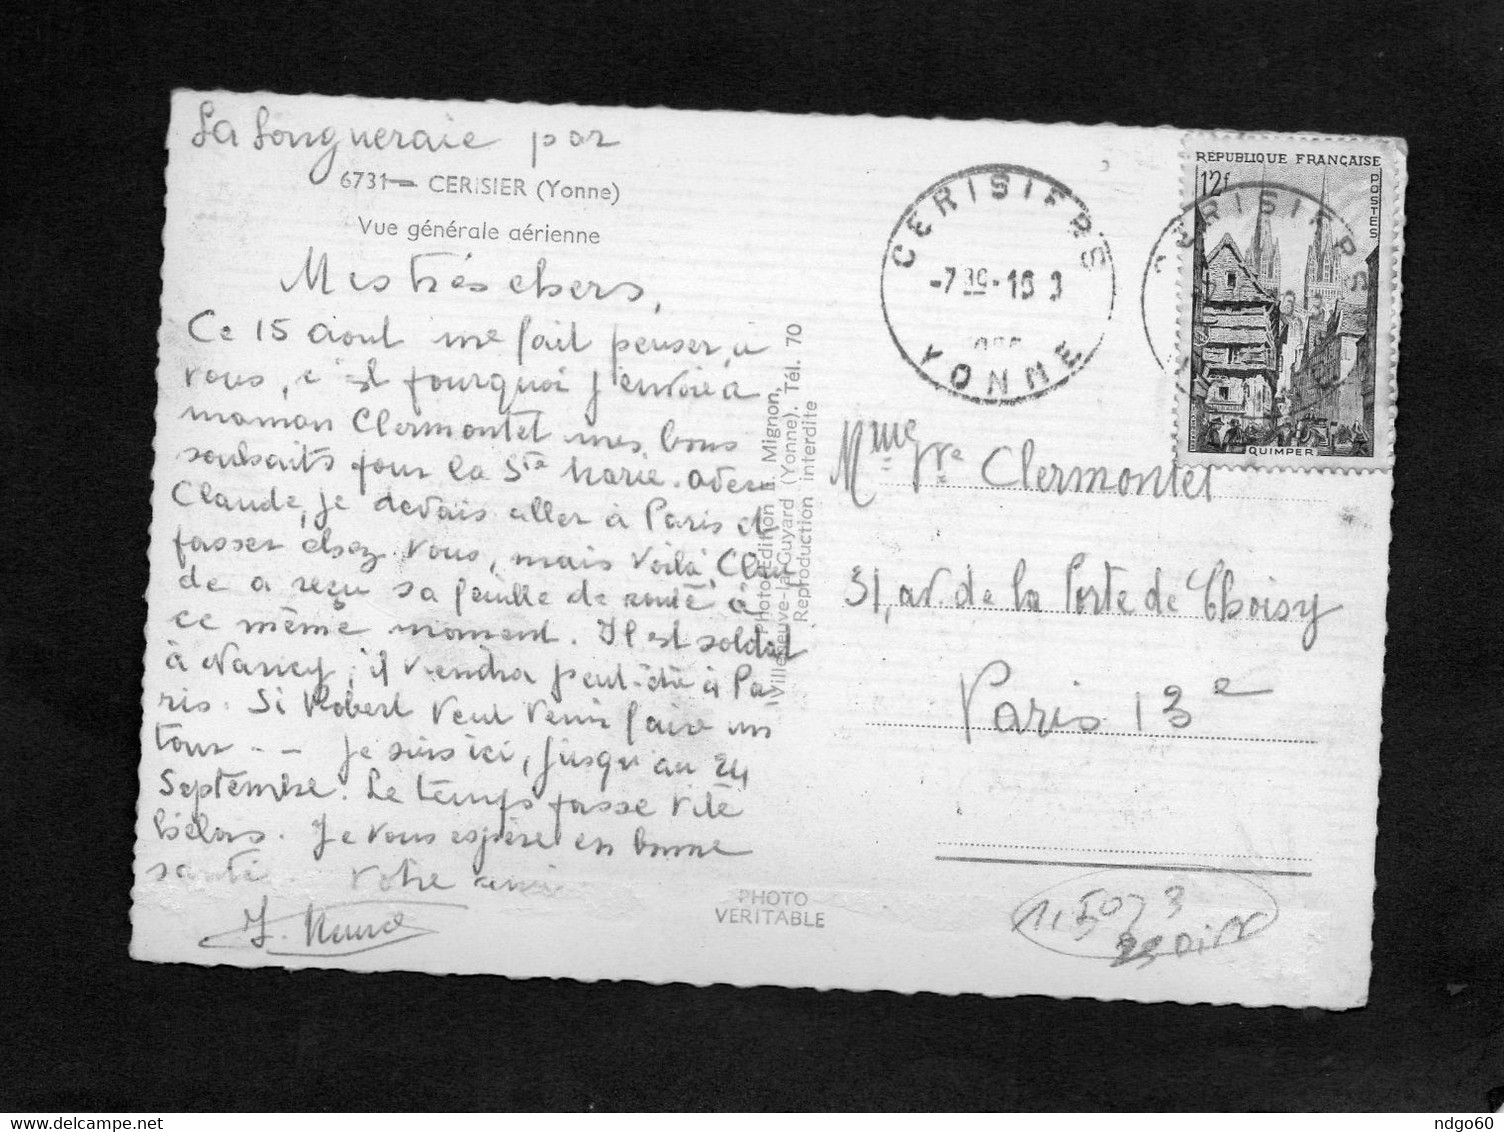 La Longueraie par
6731 - CERISIER (Yonne)
Vue générale aérienne
Mes très chers,
Ce 15 août me fait penser à
vous, c'est pourquoi j'envoie à
maman Clermontet mes bons
souhaits pour la Ste Marie. Avec
Claude, je devais aller à Paris et
passer chez vous, mais voilà, Clau
de a reçu sa feuille de route à
ce même moment. Il est soldat
à Nancy, il viendra peut-être à Pa
ris. Si Robert veut venir faire un
tour -- Je suis ici, jusqu'au 24
Septembre. Le temps passe vite
hélas. Je vous espère en bonne
santé. Votre amie
Photo-Edition L. Mignon,
Villeneuve-la-Guyard (Yonne). Tél. 70
Reproduction interdite
PHOTO
VERITABLE
CERISIERS
-7 30 - 16 9
YONNE
REPUBLIQUE FRANÇAISE
12f
POSTES
QUIMPER
CERISIERS
Mme Vve Clermontet
31, av. de la Porte de Choisy
Paris 13e
ndgo60